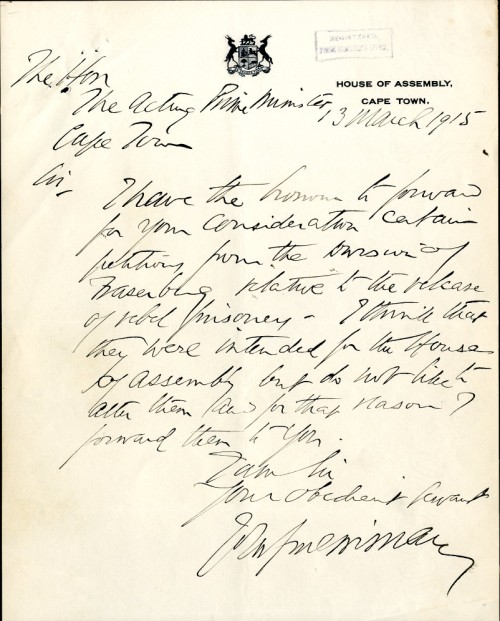 HOUSE OF ASSEMBLY,
CAPE TOWN.
13 March 1915
The Hon
The Acting Prime Minister
Cape Town
Sir
I have the honour to forward
for your consideration certain
petitions from the Division of
Fraserburg relative to the release
of rebel prisoners - I think that
they were intended for the House
of assembly but do not like to
alter them and for that reason I
forward them to you.
I am Sir
Your obedient servant
John X Merriman